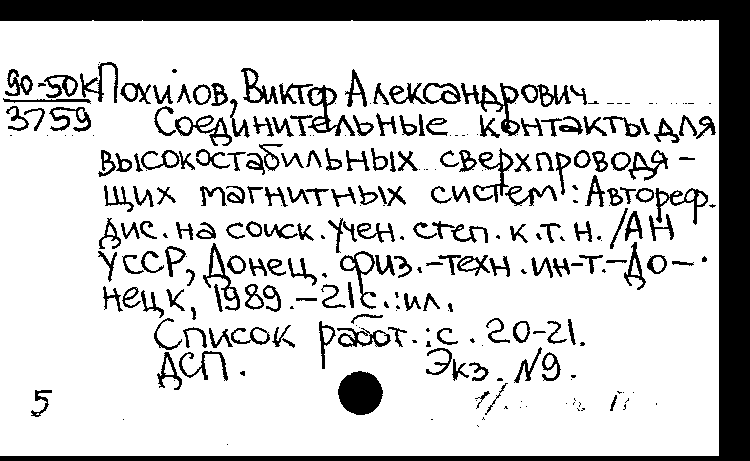 90-50к Похилов, Виктор Александрович
3759 Соединительные контакты для
высокостабильных сверхпроводя-
щих магнитных систем: Автореф.
дис. на соиск. учен. степ. к.т.н. /АН
УССР, Донец. физ.-техн. ин-т.-До-
нецк, 1989.-21с.:ил.
Список работ.:с. 20-21.
ДСП. Экз. №9.
5